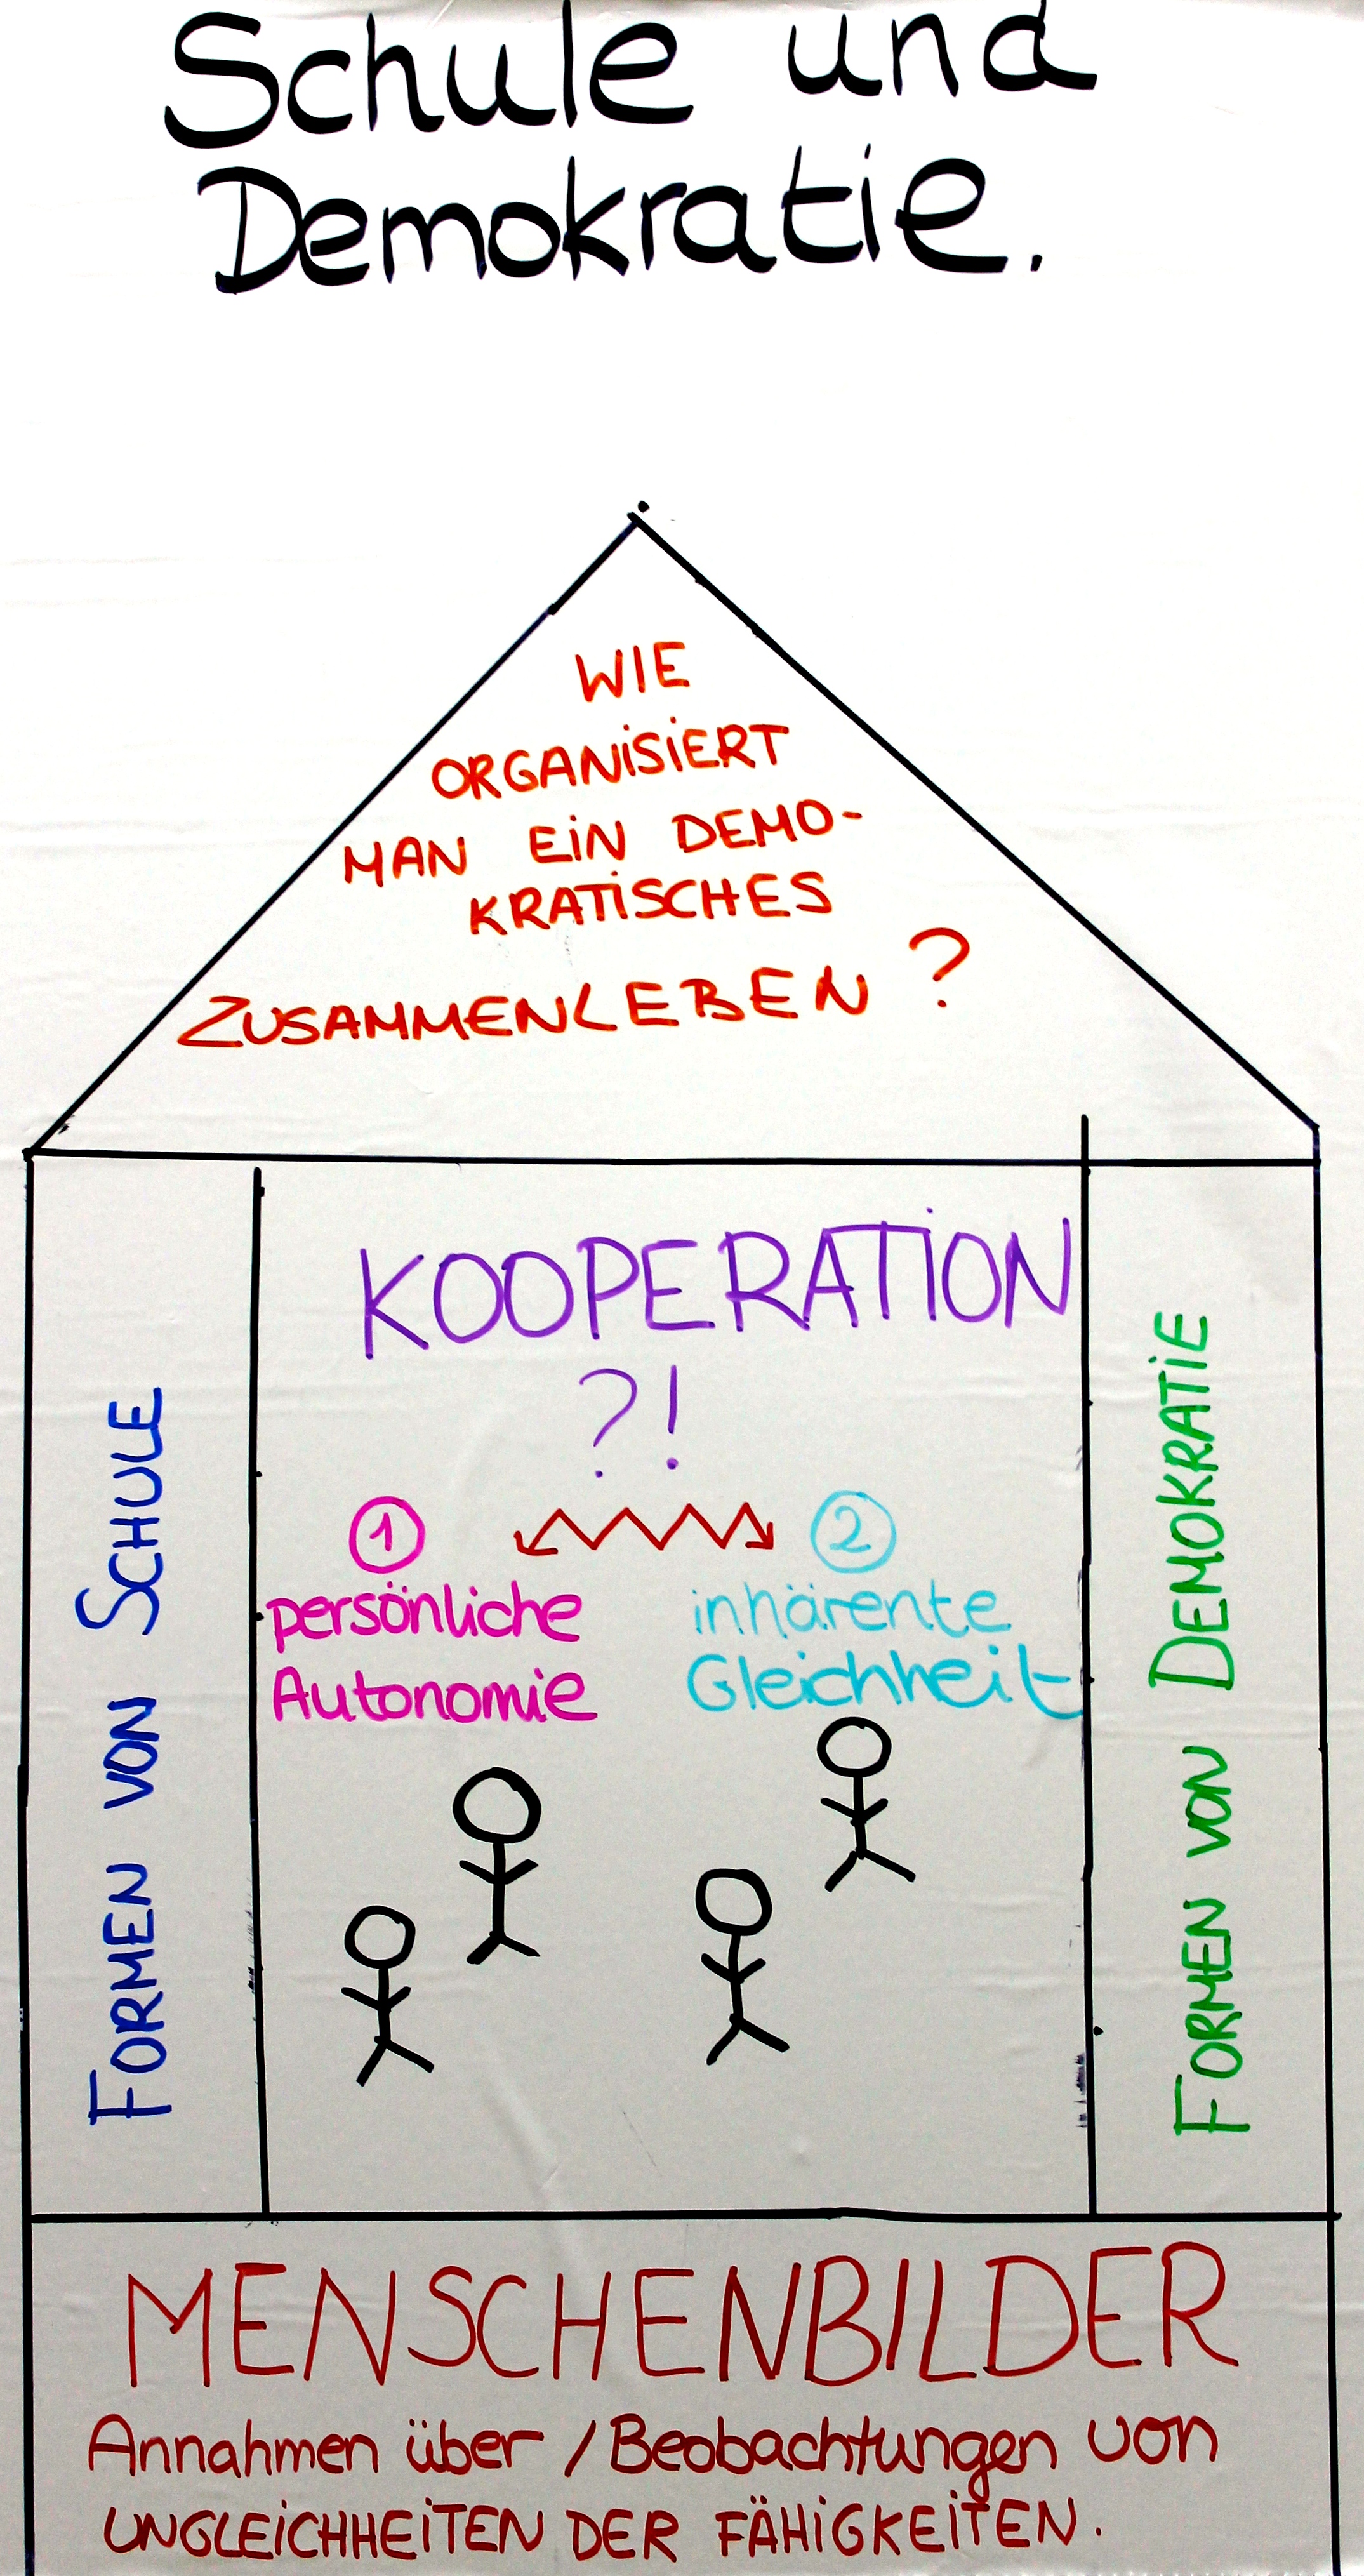 Schule und
Demokratie.
WIE
ORGANiSiERT
MAN EiN DEMO-
KRATiSCHES
ZUSAMMENLEBEN ?
FORMEN VON SCHULE
KOOPERATiON
?!
1
persönliche
Autonomie
2
inhärente
Gleichheit
FORMEN VON DEMOKRATiE
MENSCHENBILDER
Annahmen über / Beobachtungen von
UNGLEiCHHEiTEN DER FÄHiGKEiTEN.